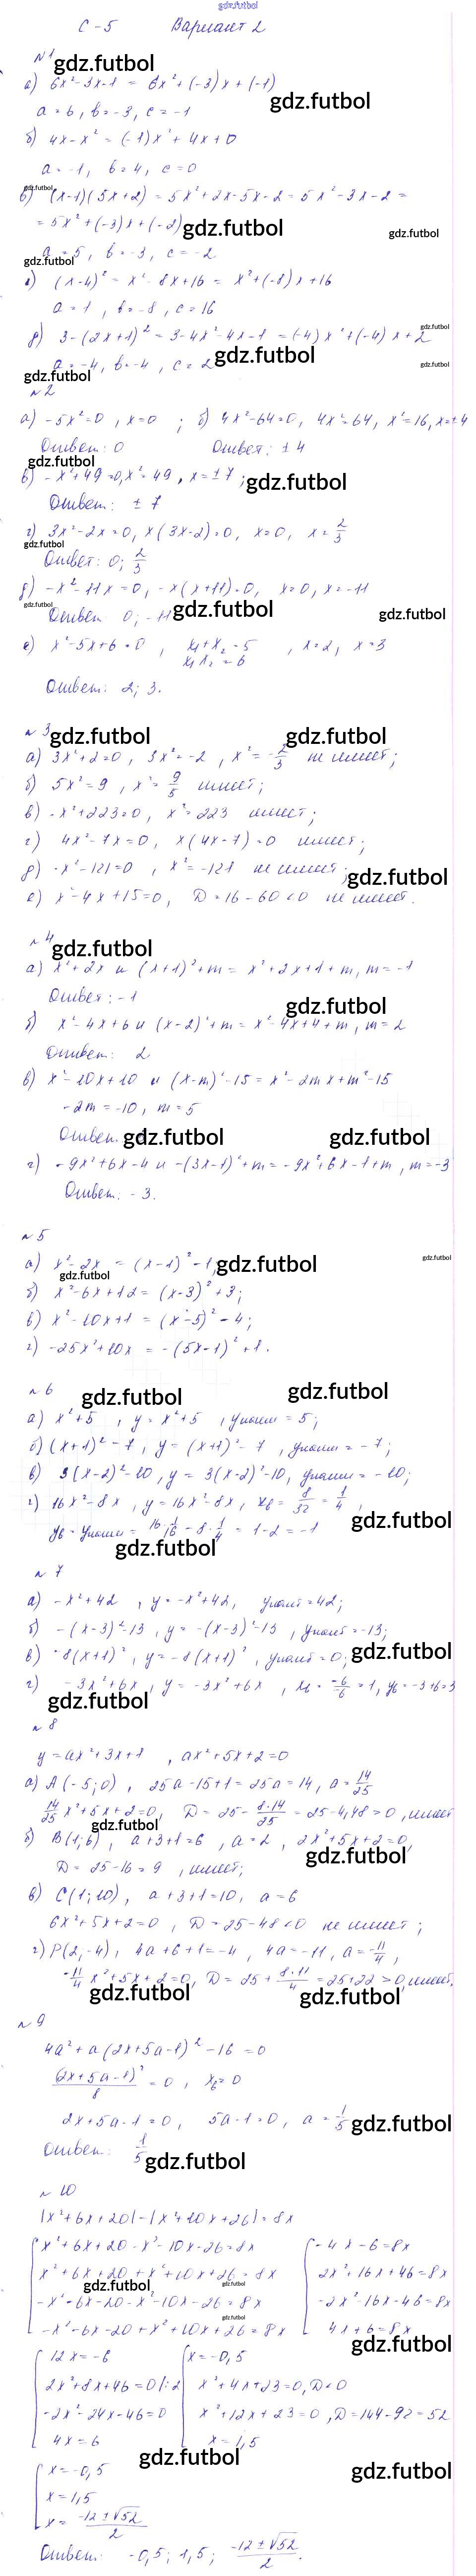 gdz.futbol
С-5 Вариант 2
№1
gdz.futbol
а) 6x²-3x-1 = 6x²+(-3)x+(-1)
gdz.futbol
a=6, b=-3, c=-1
б) 4x-x² = (-1)x²+4x+0
a=-1, b=4, c=0
gdz.futbol
в) (x-1)(5x+2) = 5x²+2x-5x-2 = 5x²-3x-2 =
= 5x²+(-3)x+(-2)
gdz.futbol
gdz.futbol
a=5, b=-3, c=-2
gdz.futbol
г) (x-4)² = x²-8x+16 = x²+(-8)x+16
a=1, b=-8, c=16
gdz.futbol
д) 3-(2x+1)² = 3-4x²-4x-1 = (-4)x²+(-4)x+2
gdz.futbol
a=-4, b=-4, c=2
gdz.futbol
gdz.futbol
№2
а) -5x²=0, x=0; б) 4x²-64=0, 4x²=64, x²=16, x=±4
Ответ: 0 Ответ: ±4
gdz.futbol
в) -x²+49=0, x²=49, x=±7;
gdz.futbol
Ответ: ±7
г) 3x²-2x=0, x(3x-2)=0, x=0, x=2/3
gdz.futbol
Ответ: 0; 2/3
д) -x²-11x=0, -x(x+11)=0, x=0, x=-11
gdz.futbol
Ответ 0; -11
gdz.futbol
gdz.futbol
е) x²-5x+6=0, x₁+x₂=5, x=2, x=3
x₁x₂=6
Ответ: 2; 3.
№3
gdz.futbol
gdz.futbol
а) 3x²+2=0, 3x²=-2, x²=-2/3 не имеет;
б) 5x²=9, x²=9/5 имеет;
в) -x²+223=0, x²=223 имеет;
г) 4x²-7x=0, x(4x-7)=0 имеет;
д) -x²-121=0, x²=-121 не имеет;
gdz.futbol
е) x²-4x+15=0, D=16-60<0 не имеет.
№4
gdz.futbol
а) x²+2x и (x+1)²+m = x²+2x+1+m, m=-1
Ответ: -1
gdz.futbol
б) x²-4x+6 и (x-2)²+m = x²-4x+4+m, m=2
Ответ: 2
в) x²-10x+10 и (x-m)²-15 = x²-2mx+m²-15
-2m=-10, m=5
Ответ.
gdz.futbol
gdz.futbol
г) -9x²+6x-4 и -(3x-1)²+m = -9x²+6x-1+m, m=-3
Ответ: -3.
№5
а) x²-2x = (x-1)²-1,
gdz.futbol
gdz.futbol
gdz.futbol
б) x²-6x+12 = (x-3)²+3;
в) x²-10x+1 = (x-5)²-4;
г) -25x²+10x = -(5x-1)²+1.
№6
gdz.futbol
gdz.futbol
а) x²+5, y=x²+5, yнаим=5;
б) (x+1)²-7, y=(x+1)²-7, yнаим=-7;
в) 3(x-2)²-10, y=3(x-2)²-10, yнаим=-10;
г) 16x²-8x, y=16x²-8x, xв=8/32=1/4,
gdz.futbol
yв=yнаим=16·1/16-8·1/4=1-2=-1
gdz.futbol
№7
а) -x²+42, y=-x²+42, yнаиб=42;
б) -(x-3)²-13, y=-(x-3)²-13, yнаиб=-13;
в) -8(x+1)², y=-8(x+1)², yнаиб=0;
gdz.futbol
г) -3x²+6x, y=-3x²+6x, xв=-6/-6=1, yв=-3+6=3
gdz.futbol
№8
y=ax²+3x+1, ax²+5x+2=0
а) A(-5;0), 25a-15+1=25a=14, a=14/25
14/25x²+5x+2=0, D=25-8·14/25=25-4,48>0, имеет
gdz.futbol
б) B(1;6), a+3+1=6, a=2, 2x²+5x+2=0,
gdz.futbol
D=25-16=9, имеет;
в) C(1;10), a+3+1=10, a=6
6x²+5x+2=0, D=25-48<0 не имеет;
г) P(2,-4), 4a+6+1=-4, 4a=-11, a=-11/4,
-11/4x²+5x+2=0, D=25+8·11/4=25+22>0, имеет.
gdz.futbol
gdz.futbol
№9
4a²+a(2x+5a-1)²-16=0
(2x+5a-1)²/8=0, xв=0
2x+5a-1=0, 5a-1=0, a=1/5
gdz.futbol
Ответ: 1/5
gdz.futbol
№10
|x²+6x+20|-|x²+10x+26|=8x
x²+6x+20-x²-10x-26=8x -4x-6=8x
x²+6x+20+x²+10x+26=8x 2x²+16x+46=8x
gdz.futbol
gdz.futbol
-x²-6x-20-x²-10x-26=8x -2x²-16x-46=8x
gdz.futbol
-x²-6x-20+x²+10x+26=8x 4x+6=8x
gdz.futbol
12x=-6 x=-0,5
2x²+8x+46=0|:2 x²+4x+23=0, D<0
-2x²-24x-46=0 x²+12x+23=0, D=144-92=52
4x=6 x=1,5
gdz.futbol
gdz.futbol
x=-0,5
x=1,5
x=-12±√52/2
Ответ: -0,5; 1,5; -12±√52/2.